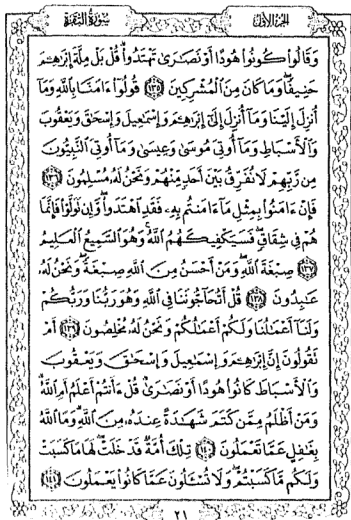 الجزء الأول
سورة البقرة
وَقَالُوا۟ كُونُوا۟ هُودًا أَوْ نَصَـٰرَىٰ تَهْتَدُوا۟ قُلْ بَلْ مِلَّةَ إِبْرَٰهِـۧمَ
حَنِيفًا وَمَا كَانَ مِنَ ٱلْمُشْرِكِينَ ١٣٥ قُولُوٓا۟ ءَامَنَّا بِٱللَّهِ وَمَآ
أُنزِلَ إِلَيْنَا وَمَآ أُنزِلَ إِلَىٰٓ إِبْرَٰهِـۧمَ وَإِسْمَـٰعِيلَ وَإِسْحَـٰقَ وَيَعْقُوبَ
وَٱلْأَسْبَاطِ وَمَآ أُوتِىَ مُوسَىٰ وَعِيسَىٰ وَمَآ أُوتِىَ ٱلنَّبِيُّونَ
مِن رَّبِّهِمْ لَا نُفَرِّقُ بَيْنَ أَحَدٍ مِّنْهُمْ وَنَحْنُ لَهُۥ مُسْلِمُونَ ١٣٦
فَإِنْ ءَامَنُوا۟ بِمِثْلِ مَآ ءَامَنتُم بِهِۦ فَقَدِ ٱهْتَدَوا۟ وَّإِن تَوَلَّوْا۟ فَإِنَّمَا
هُمْ فِى شِقَاقٍ فَسَيَكْفِيكَهُمُ ٱللَّهُ وَهُوَ ٱلسَّمِيعُ ٱلْعَلِيمُ
١٣٧ صِبْغَةَ ٱللَّهِ وَمَنْ أَحْسَنُ مِنَ ٱللَّهِ صِبْغَةً وَنَحْنُ لَهُۥ
عَـٰبِدُونَ ١٣٨ قُلْ أَتُحَآجُّونَنَا فِى ٱللَّهِ وَهُوَ رَبُّنَا وَرَبُّكُمْ
وَلَنَآ أَعْمَـٰلُنَا وَلَكُمْ أَعْمَـٰلُكُمْ وَنَحْنُ لَهُۥ مُخْلِصُونَ ١٣٩ أَمْ
تَقُولُونَ إِنَّ إِبْرَٰهِـۧمَ وَإِسْمَـٰعِيلَ وَإِسْحَـٰقَ وَيَعْقُوبَ
وَٱلْأَسْبَاطَ كَانُوا۟ هُودًا أَوْ نَصَـٰرَىٰ قُلْ ءَأَنتُمْ أَعْلَمُ أَمِ ٱللَّهُ
وَمَنْ أَظْلَمُ مِمَّن كَتَمَ شَهَـٰدَةً عِندَهُۥ مِنَ ٱللَّهِ وَمَا ٱللَّهُ
بِغَـٰفِلٍ عَمَّا تَعْمَلُونَ ١٤٠ تِلْكَ أُمَّةٌ قَدْ خَلَتْ لَهَا مَا كَسَبَتْ
وَلَكُم مَّا كَسَبْتُمْ وَلَا تُسْـَٔلُونَ عَمَّا كَانُوا۟ يَعْمَلُونَ ١٤١
٢١